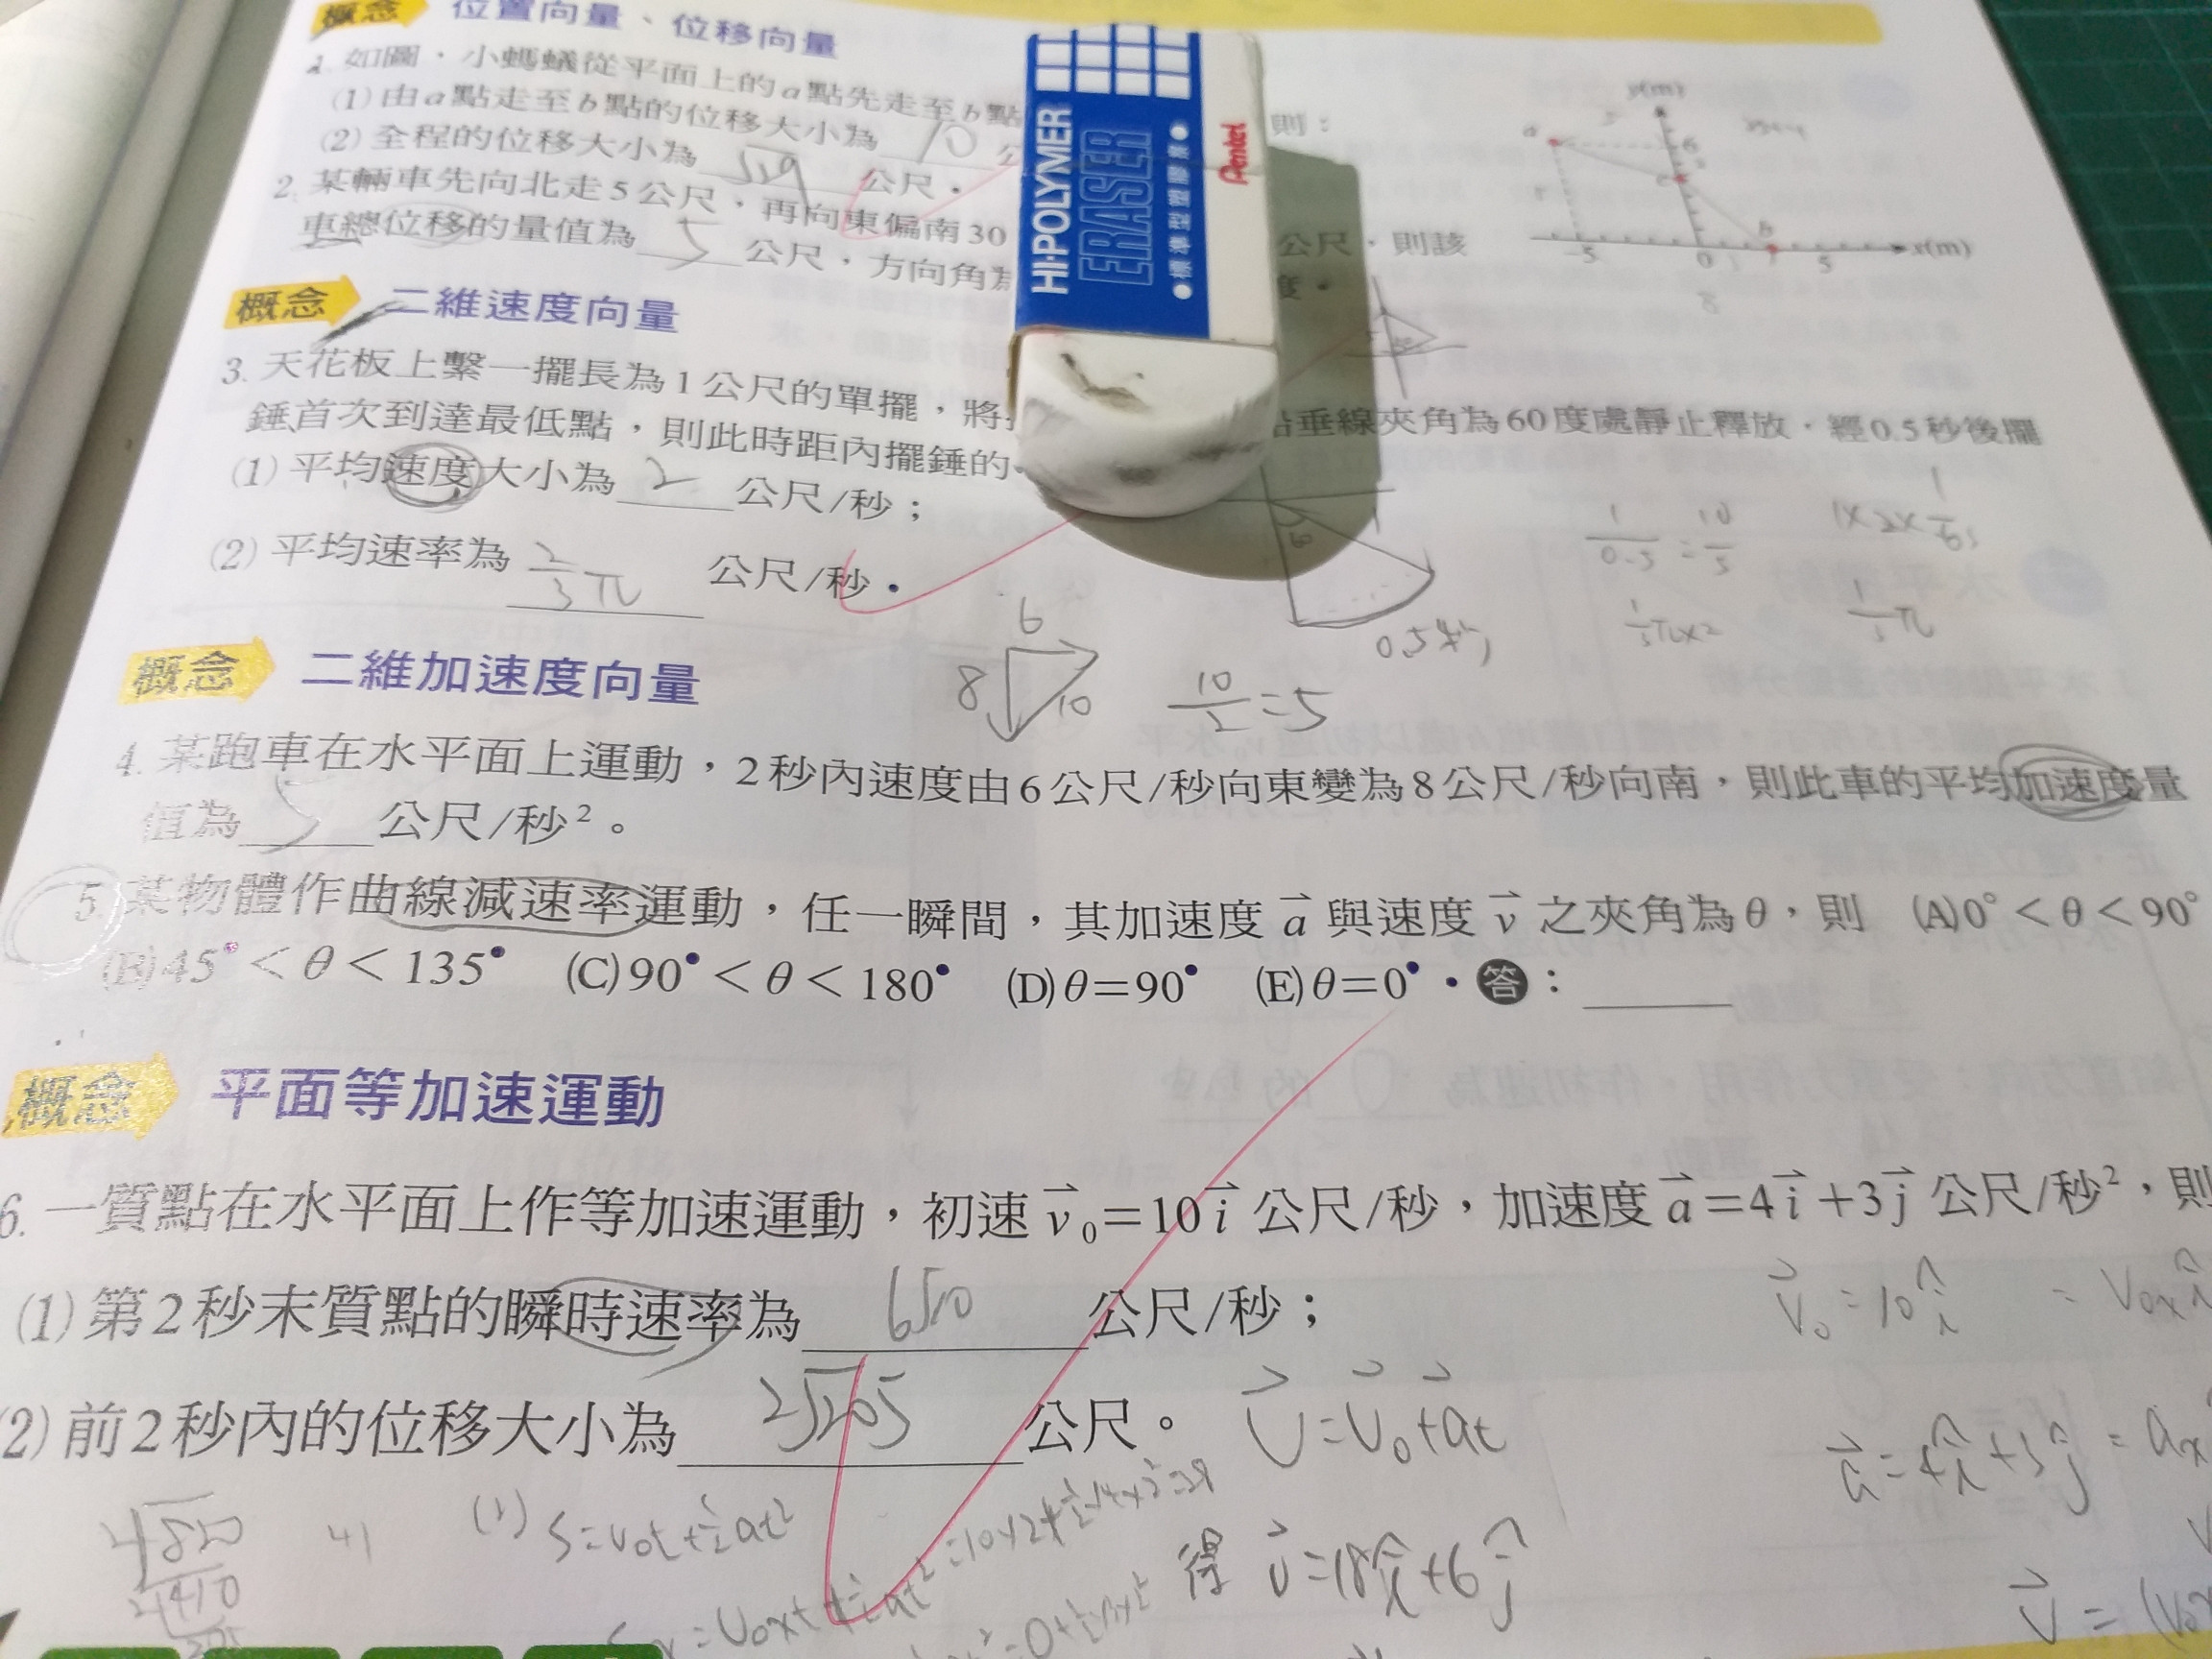 概念 位置向量、位移向量
1. 如圖，小螞蟻從平面上的a點先走至b點 則：
(1) 由a點走至b點的位移大小為 10 公
(2) 全程的位移大小為 公尺。
2. 某輛車先向北走5公尺，再向東偏南30 公尺，則該
車總位移的量值為 5 公尺，方向角為 度。
y(m)
a
6
c
b
-5 0 5 x(m)
8
HI-POLYMER
ERASER
Pentel
概念 二維速度向量
3. 天花板上繫一擺長為1公尺的單擺，將 垂線夾角為60度處靜止釋放，經0.5秒後擺
錘首次到達最低點，則此時距內擺錘的
(1) 平均速度大小為 2 公尺/秒；
(2) 平均速率為 2/3 π 公尺/秒。
1/0.5 = 10/5
1/3 π×2
1/3 π
0.5秒
概念 二維加速度向量
6
8
10
10/2 = 5
4. 某跑車在水平面上運動，2秒內速度由6公尺/秒向東變為8公尺/秒向南，則此車的平均加速度量
值為 5 公尺/秒²。
5. 某物體作曲線減速率運動，任一瞬間，其加速度 a⃗ 與速度 v⃗ 之夾角為θ，則 (A)0° < θ < 90°
(B)45° < θ < 135° (C)90° < θ < 180° (D)θ=90° (E)θ=0°。答：
概念 平面等加速運動
6. 一質點在水平面上作等加速運動，初速 v⃗₀=10i⃗ 公尺/秒，加速度 a⃗=4i⃗+3j⃗ 公尺/秒²，則
(1) 第2秒末質點的瞬時速率為 6√10 公尺/秒；
v⃗₀ = 10î = V₀ₓî
(2) 前2秒內的位移大小為 2√205 公尺。 v⃗=v⃗₀+a⃗t
a⃗=4î+3ĵ = aₓ
2√820
2√410
205
41
(2) S=V₀t+½at²
得 v⃗=18î+6ĵ
v⃗ = (V₀ₓ